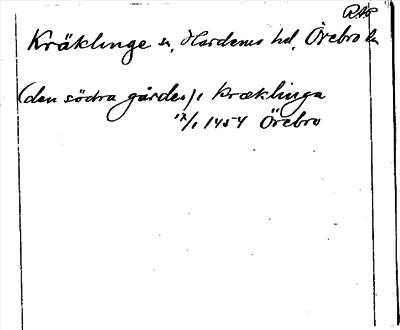 RAP
Kräklinge sn, Hardemo hd, Örebro l.
(den södra gården) i Kræklinga
17/1 1454 Örebro